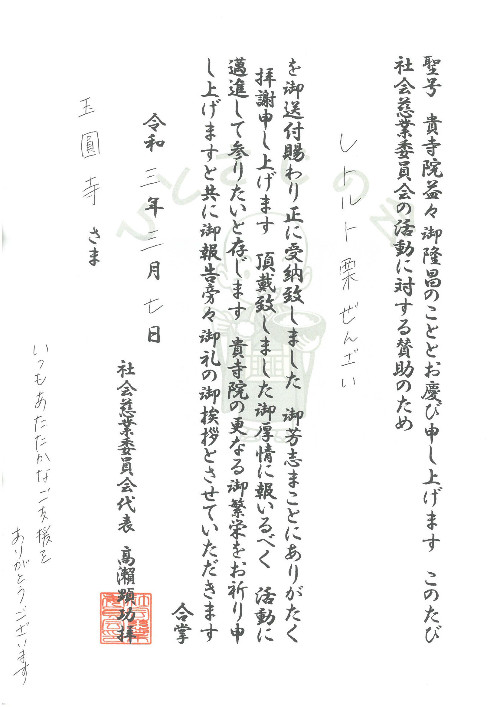 聖号　貴寺院益々御隆昌のこととお慶び申し上げます　このたび
社会慈業委員会の活動に対する賛助のため
レトルト栗ぜんざい
を御送付賜わり正に受納致しました　御芳志まことにありがたく
拝謝申し上げます　頂戴致しました御厚情に報いるべく　活動に
邁進して参りたいと存じます　貴寺院の更なる御繁栄をお祈り申
し上げますと共に御報告旁々御礼の御挨拶とさせていただきます
合掌
令和三年三月七日
社会慈業委員会代表　高瀬顕功拝
玉圓寺さま
いつもあたたかなご支援を
ありがとうございます
ひとさじの会